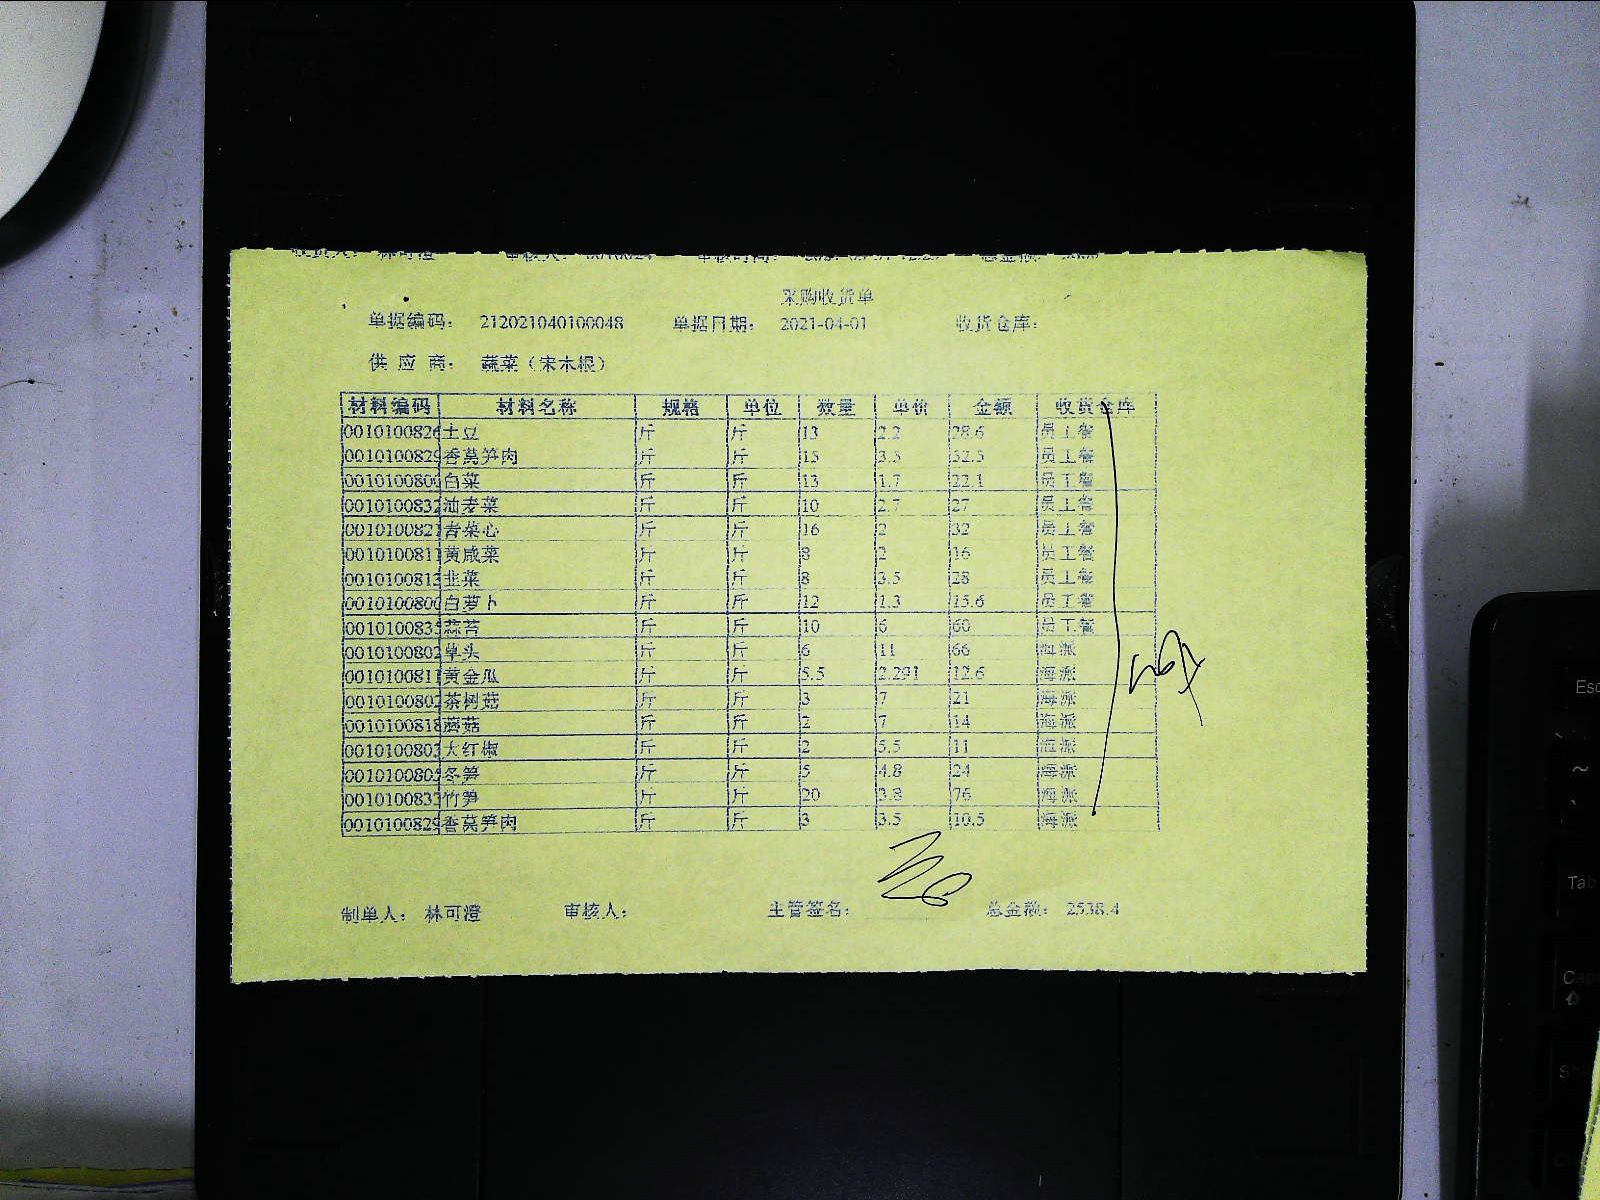 采购收货单
单据编码： 212021040100048 单据日期： 2021-04-01 收货仓库：
供 应 商： 蔬菜（宋木根）
材料编码 材料名称 规格 单位 数量 单价 金额 收货仓库
0010100826 土豆 斤 斤 13 2.2 28.6 员工餐
0010100829 香莴笋肉 斤 斤 15 3.5 52.5 员工餐
0010100800 白菜 斤 斤 13 1.7 22.1 员工餐
0010100832 油麦菜 斤 斤 10 2.7 27 员工餐
0010100821 青菜心 斤 斤 16 2 32 员工餐
0010100811 黄咸菜 斤 斤 8 2 16 员工餐
0010100813 韭菜 斤 斤 8 3.5 28 员工餐
0010100800 白萝卜 斤 斤 12 1.3 15.6 员工餐
0010100835 蒜苔 斤 斤 10 6 60 员工餐
0010100802 草头 斤 斤 6 11 66 海派
0010100811 黄金瓜 斤 斤 5.5 2.291 12.6 海派
0010100802 茶树菇 斤 斤 3 7 21 海派
0010100818 蘑菇 斤 斤 2 7 14 海派
0010100803 大红椒 斤 斤 2 5.5 11 海派
0010100805 冬笋 斤 斤 5 4.8 24 海派
0010100833 竹笋 斤 斤 20 3.8 76 海派
0010100829 香莴笋肉 斤 斤 3 3.5 10.5 海派
制单人： 林可澄 审核人： 主管签名： 总金额： 2538.4
Esc
~
Tab